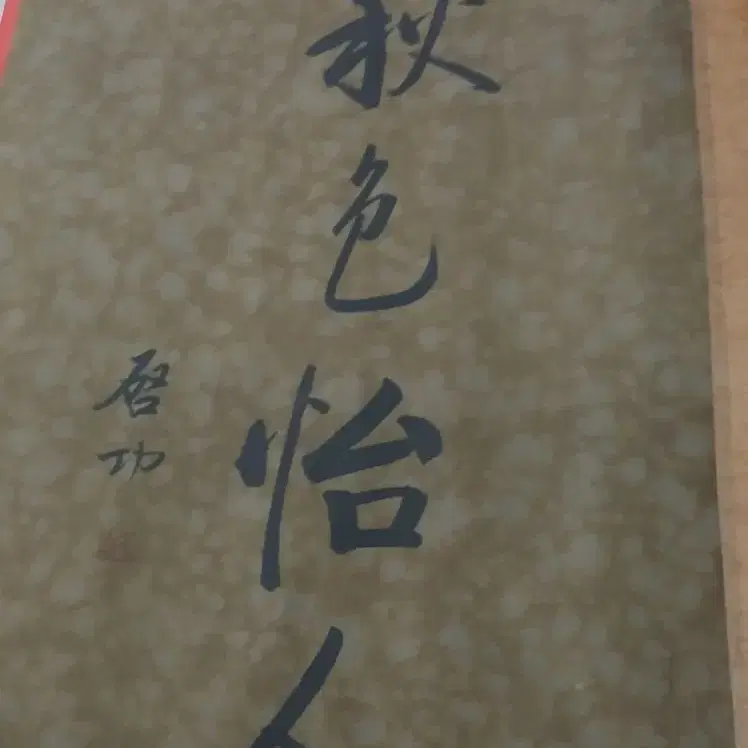 秋色怡人
啓功